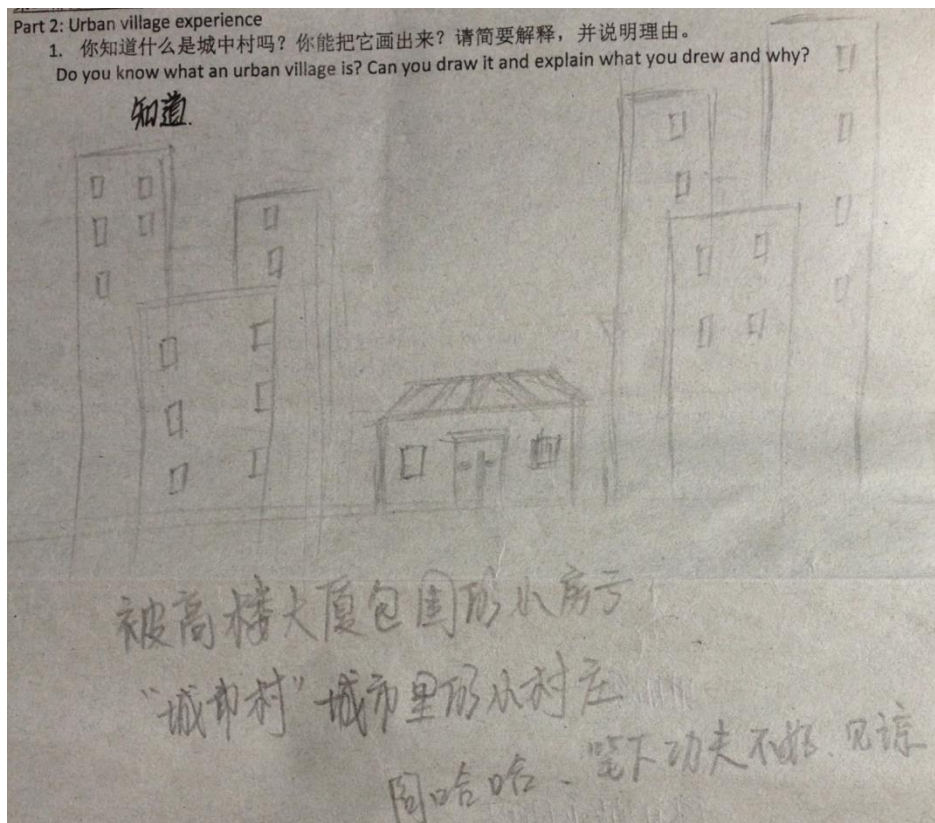 Part 2: Urban village experience
1. 你知道什么是城中村吗？你能把它画出来？请简要解释，并说明理由。
Do you know what an urban village is? Can you draw it and explain what you drew and why?
知道.
被高楼大厦包围的小房子
“城中村”城市里的小村庄
哈哈、笔下功夫不好、见谅